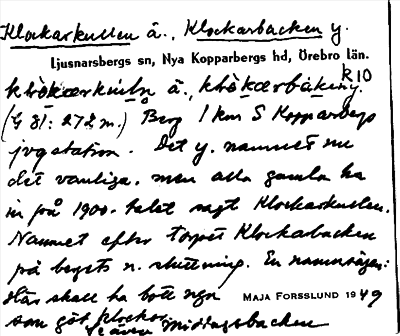 Klockarkullen ä., Klockarbacken y.
Ljusnarsbergs sn, Nya Kopparbergs hd, Örebro län.
k10
(G 81: 272 m.) Berg 1 km S Kopparbergs
jvgstation. Det y. namnet nu
det vanliga, men alla gamla ha
in på 1900-talet sagt Klockarkullen.
Namnet efter torpet Klockabacken
på bergets n. sluttning. En namnsägen:
Här skall ha bott ngn
MAJA FORSSLUND 1949
som göt klockor
även Middagsbacken